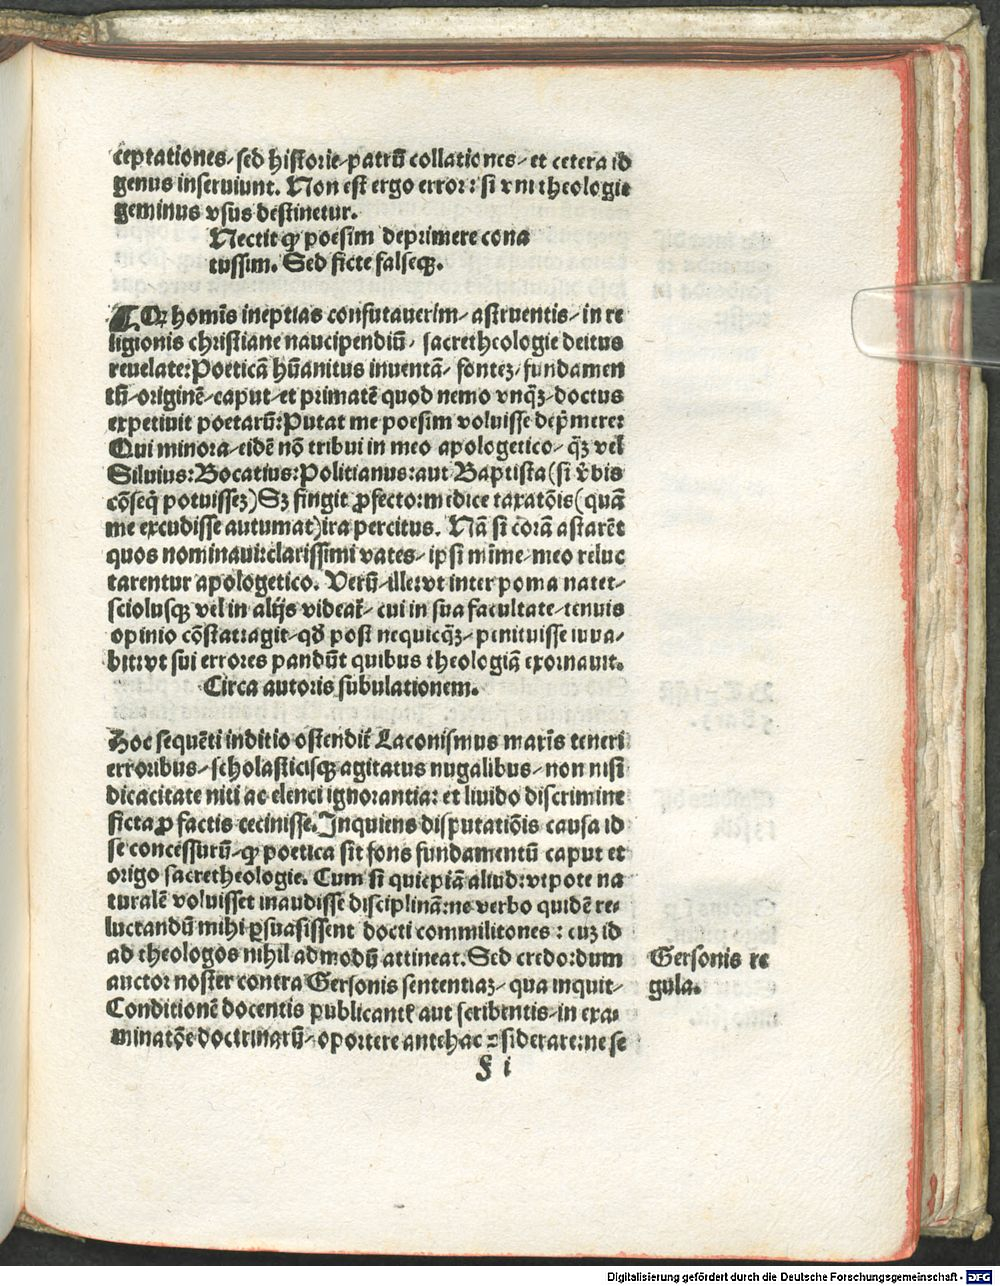 ceptationes/ sed historie/ patrū collationes/ et cetera id
genus inseruiunt. Non est ergo error: si vni theologie
geminus vsus destinetur.
Nectit ꝙ poesim deprimere cona
tussim. Sed ficte falseqꝫ.
homīs ineptias confutauerim/ astruentis/ in re
ligionis christiane naucipendiū/ sacretheologie deitus
reuelate: Poeticā hūanitus inuentā/ fontez/ fundamen
tū/ originē/ caput/ et primatē quod nemo vnqꝫ/ doctus
expetiuit poetarū: Putat me poesim voluisse dep̄mere:
Qui minora/ eidē nō tribui in meo apologetico/ qꝫ vel
Siluius: Bocatius: Politianus: aut Baptista (si v̄bis
cōseq̄ potuissez) Sꝫ fingit ꝓfecto: medice taxatōis (quā
me excudisse autumat) ira percitus. Nā si corā astarēt
quos nominaui: clarissimi vates/ ipsi mīme/ meo reluc
tarentur apologetico. Verū/ ille: vt inter poma natet/
sciolusqꝫ vel in altijs videat̄/ cui in sua facultate/ tenuis
opinio cōstat: agit/ qđ post nequicqꝫ/ penituisse iuua/
bit: vt sui errores pandūt quibus theologiā exornauit.
Circa autoris subulationem.
Hoc sequēti inditio ostendit̄ Laconismus marīs teneri
erroribus/ scholasticisqꝫ agitatus nugalibus/ non nisi
dicacitate niti ac elenci ignorantia: et liuido discrimine
ficta ꝓ factis cecinisse. Inquiens disputatiōis causa id
se concessurū/ ꝙ poetica sit fons fundamentū caput et
origo sacretheologie. Cum si quiepiā aliud: vtpote na
turalē voluisset inaudisse disciplinā: ne verbo quidē re/
luctandū mihi ꝑsuasissent docti commilitones: cuꝫ id
ad theologos nihil admodū attineat. Sed credo: dum
auctor noster contra Gersonis sententiaꝫ/ qua inquit/
Conditionē docentis publicantꝭ aut scribentis/ in exa/
minatōe doctrinarū/ oportere antehac ꝯsiderare: ne se
Gersonis re
gula.
§ i
Digitalisierung gefördert durch die Deutsche Forschungsgemeinschaft - DFG